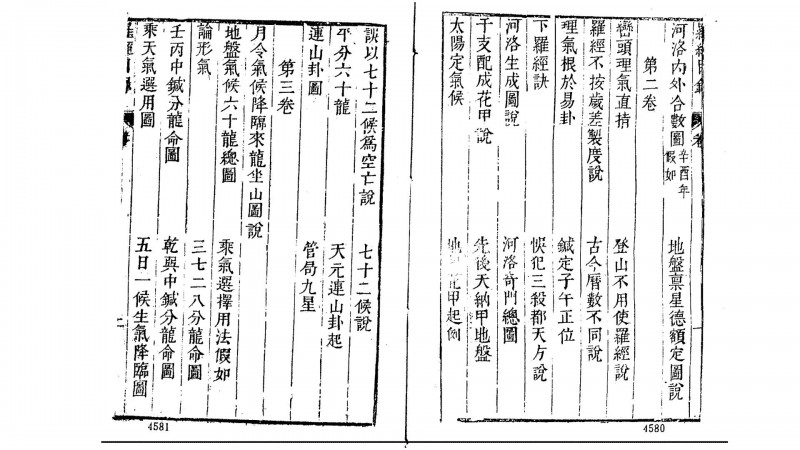 河洛內外合數圖 辛酉年假如 地盤禀星德額定圖說
第二卷
巒頭理氣直指 登山不用使羅經說
羅經不按歲差製度說 古今曆數不同說
理氣根於易卦 鍼定子午正位
下羅經訣 快犯三殺都天方說
河洛生成圖說 河洛竒門總圖
干支配成花甲說 先後天納甲地盤
太陽定氣候 花甲起例
4580
訣以七十二候爲空亡說 七十二候說
平分六十龍 天元連山卦起
連山卦圖 管局九星
第三卷
月令氣候降臨來龍坐山圖說
地盤氣候六十龍總圖 乘氣選擇用法假如
論形氣 三七二八分龍命圖
壬丙中鍼分龍命圖 乾巽中鍼分龍命圖
乘天氣選用圖 五日一候生氣降臨圖
二
4581